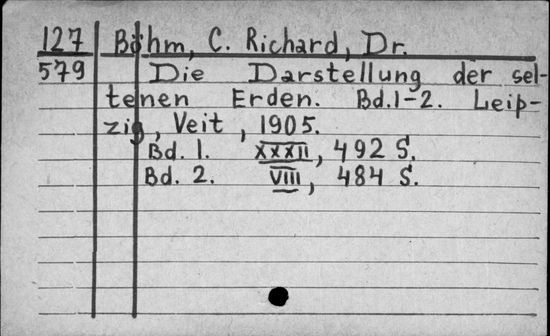 127 Böhm, C. Richard, Dr.
579 Die Darstellung der sel-
tenen Erden. Bd.1-2. Leip-
zig, Veit, 1905.
Bd. 1. XXXII, 492 S.
Bd. 2. VIII, 484 S.